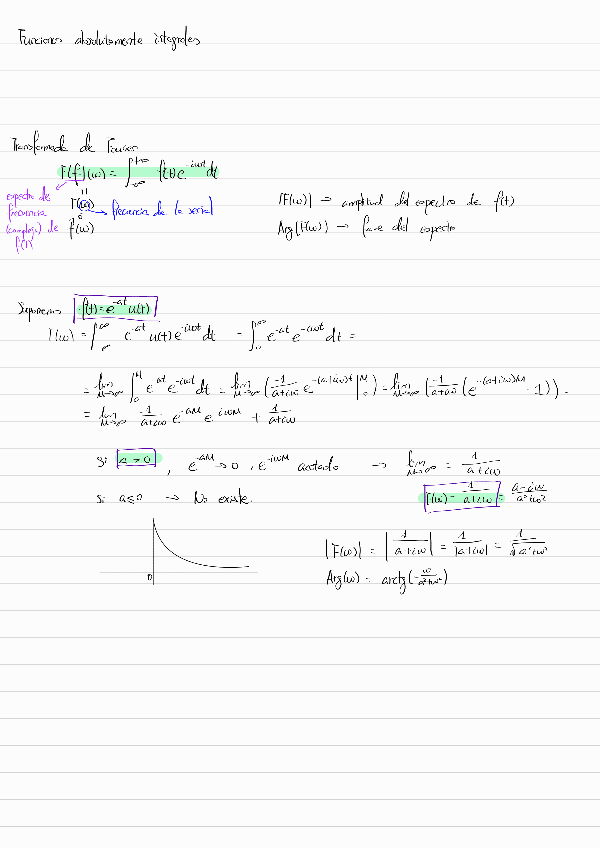 Funciones absolutamente integrables
Transformada de Fourier
F(f)(ω) = ∫_{-∞}^{+∞} f(t) e^{-iωt} dt
espectro de frecuencia (complejo) de f(t)
F(ω) → frecuencia de la señal
ó
f̂(ω)
|F(ω)| → amplitud del espectro de f(t)
Arg(F(ω)) → fase del espectro
Suponemos f(t) = e^{-at} u(t)
F(ω) = ∫_{-∞}^{∞} e^{-at} u(t) e^{-iωt} dt = ∫_0^{∞} e^{-at} e^{-iωt} dt =
= lim_{M→∞} ∫_0^M e^{-at} e^{-iωt} dt = lim_{M→∞} (-1/(a+iω) e^{-(a+iω)t} |_0^M) = lim_{M→∞} (-1/(a+iω) (e^{-(a+iω)M} - 1)) =
= lim_{M→∞} -1/(a+iω) e^{-aM} e^{-iωM} + 1/(a+iω)
Si a > 0, e^{-aM} → 0, e^{-iωM} acotado → lim_{M→∞} = 1/(a+iω)
Si a ≤ 0 → No existe.
F(ω) = 1/(a+iω) = (a-iω)/(a²+ω²)
0
|F(ω)| = |1/(a+iω)| = 1/|a+iω| = 1/√(a²+ω²)
Arg(ω) = arctg(-ω/(a²+ω²))